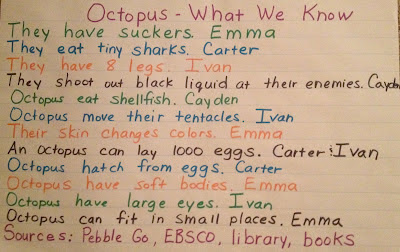 Octopus - What We Know
They have suckers. Emma
They eat tiny sharks. Carter
They have 8 legs. Ivan
They shoot out black liquid at their enemies. Cayden
Octopus eat shellfish. Cayden
Octopus move their tentacles. Ivan
Their skin changes colors. Emma
An octopus can lay 1000 eggs. Carter & Ivan
Octopus hatch from eggs. Carter
Octopus have soft bodies. Emma
Octopus have large eyes. Ivan
Octopus can fit in small places. Emma
Sources: Pebble Go, EBSCO, library, books